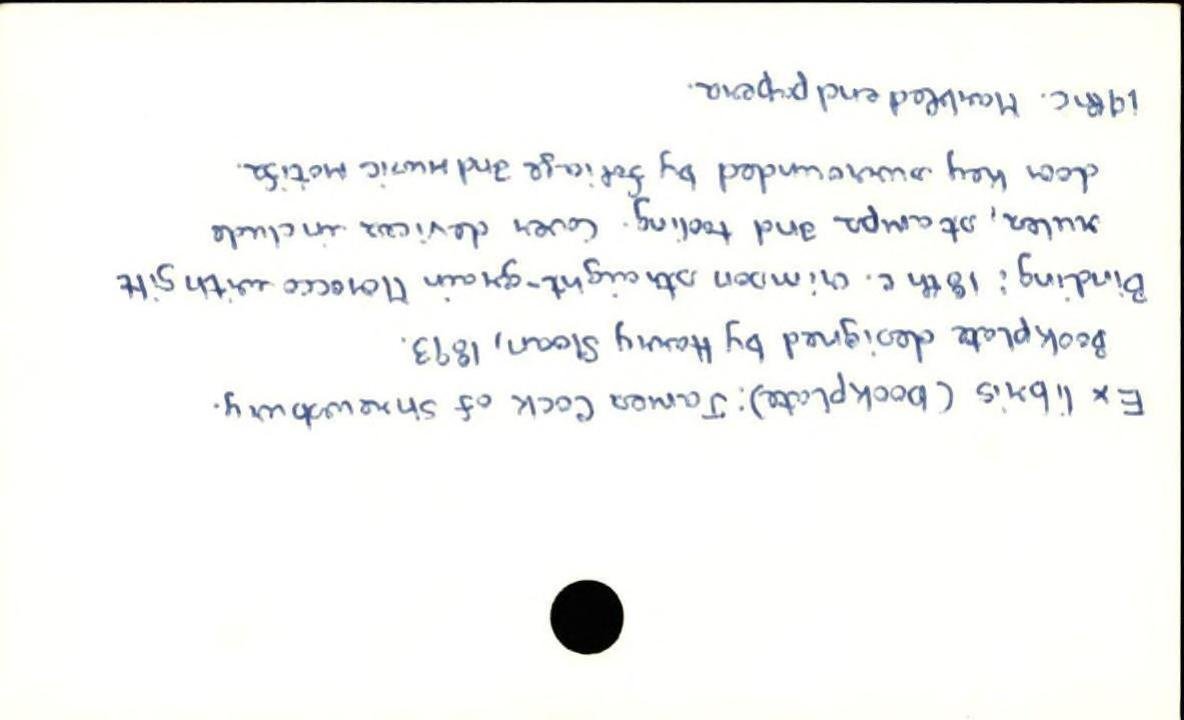 Ex libris (bookplate): James Cock of Shrewsbury.
Bookplate designed by Harry Sloan, 1893.
Binding: 18th c. crimson straight-grain Morocco with gilt
rules, stamps and tooling. Cover devices include
door key surrounded by foliage and music motifs.
19th c. Marbled endpapers.